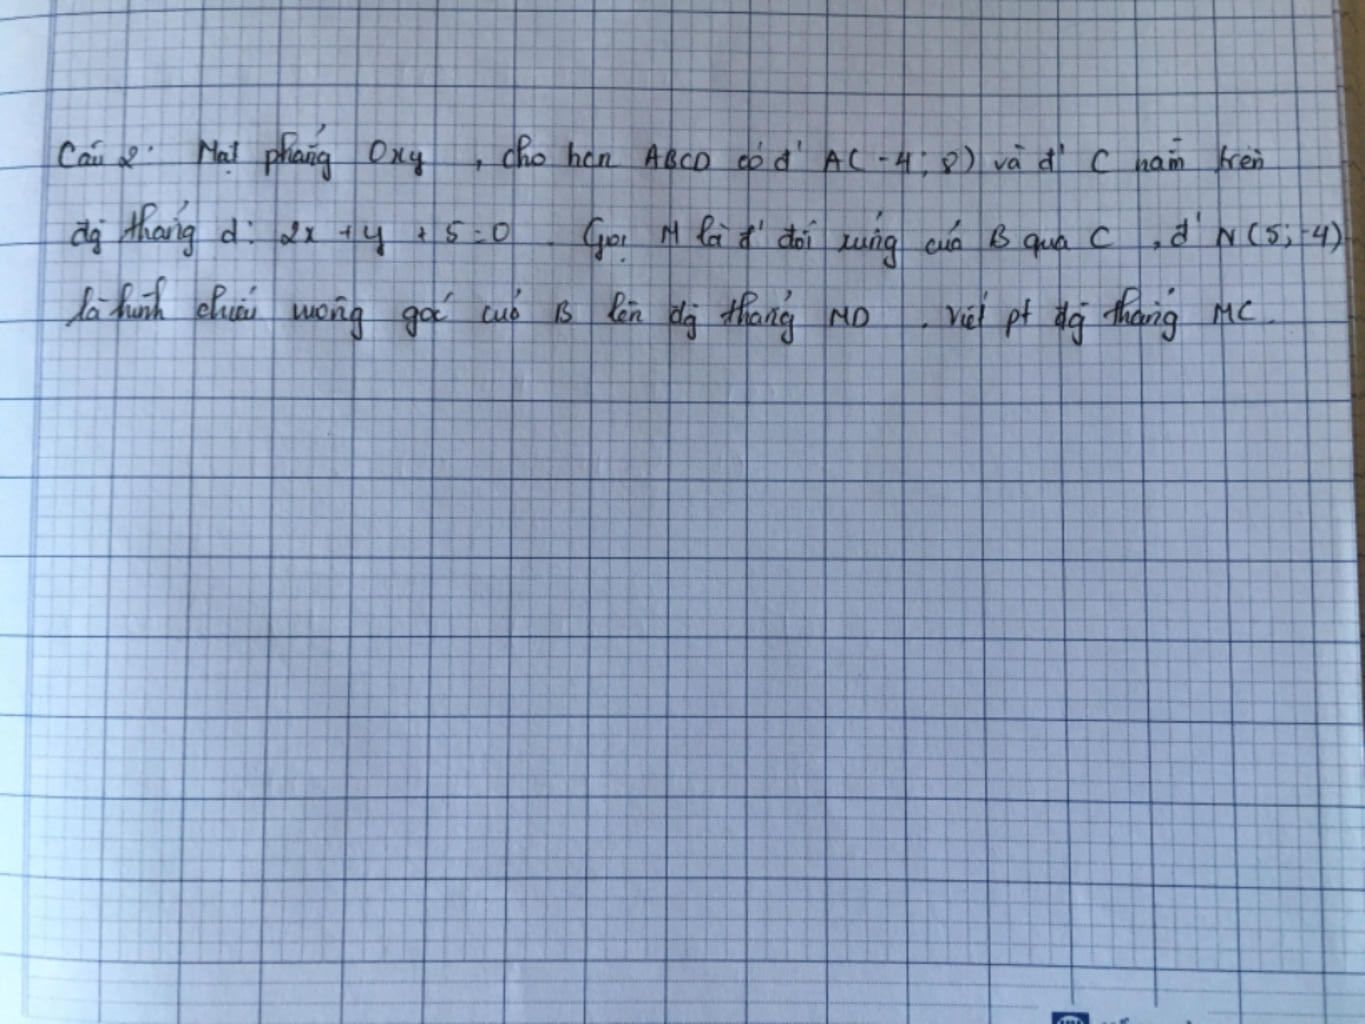 Câu 2: Mặt phẳng Oxy, cho hcn ABCD có đ' A(-4; 8) và đ' C nằm trên
đg thẳng d: 2x + y + 5 = 0. Gọi M là đ' đối xứng của B qua C, đ' N(5; -4)
là hình chiếu vuông góc của B lên đg thẳng MD. Viết pt đg thẳng MC.